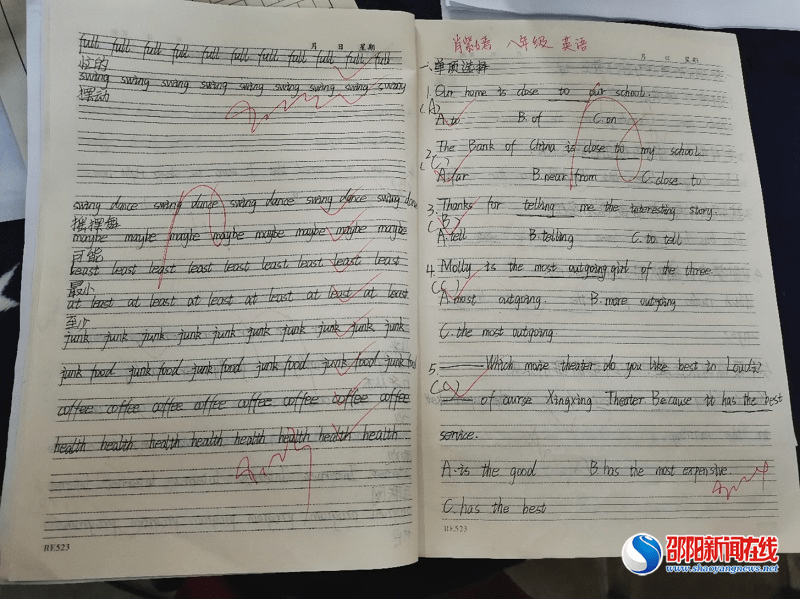 月 日 星期
full full full full full full full full full full full
忙的
swing swing swing swing swing swing swing swing swing
摆动
swing dance swing dance swing dance swing dance swing dance
摇摆舞
maybe maybe maybe maybe maybe maybe maybe maybe
可能
least least least least least least least least least
最小
at least at least at least at least at least at least
至少
junk junk junk junk junk junk junk junk junk
junk food junk food junk food junk food junk food
coffee coffee coffee coffee coffee coffee coffee coffee
health health health health health health health health
RE523
八年级 英语
月 日 星期
一、单项选择
1. Our home is close to our school.
(A)
A. to B. of C. on
2. The Bank of China is close to my school.
(C)
A. far B. near from C. close to
3. Thanks for telling me the interesting story.
(B)
A. tell B. telling C. to tell
4. Molly is the most outgoing girl of the three.
(C)
A. most outgoing. B. more outgoing
C. the most outgoing
5. Which movie theater do you like best in
of course Xingxing Theater Because to has the best
service.
A. is the good B. has the most expensive.
C. has the best
RE523
邵阳新闻在线
www.shaoyangnews.net